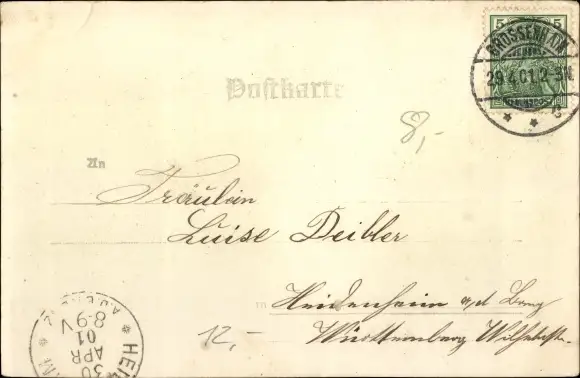 5 5
GROSSENHAIN
29.4.01.2-3N.
* * c
Postkarte
8,-
An
Fräulein
Luise Deibler
in Heidenheim a/d Brenz
Württemberg Wilhelmstr.
12,-
HEI
30
APR
01
8-9V